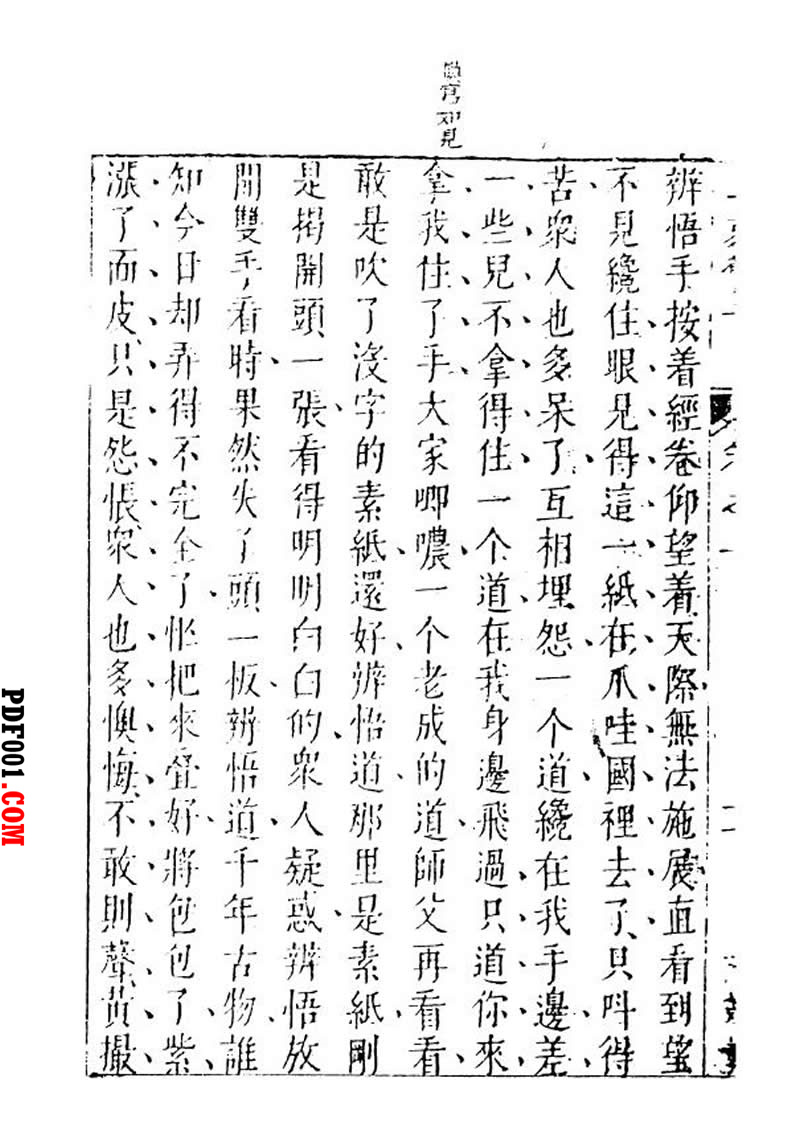 辨悟手按着經卷仰望着天際無法施展直看到望
不見纔住眼見得這一紙在爪哇國裡去了只呌得
苦衆人也多呆了互相埋怨一个道纔在我手邊差
一些兒不拿得住一个道在我身邊飛過只道你來
拿我住了手大家唧噥一个老成的道師父再看看
敢是吹了沒字的素紙還好辨悟道那里是素紙剛
是揭開頭一張看得明明白白的衆人疑惑辨悟放
開雙手看時果然失了頭一板辨悟道千年古物誰
知今日却弄得不完全了忙把來疊好將包包了紫
漲了面皮只是怨悵衆人也多懊悔不敢則聲黃撮
PDF001.COM